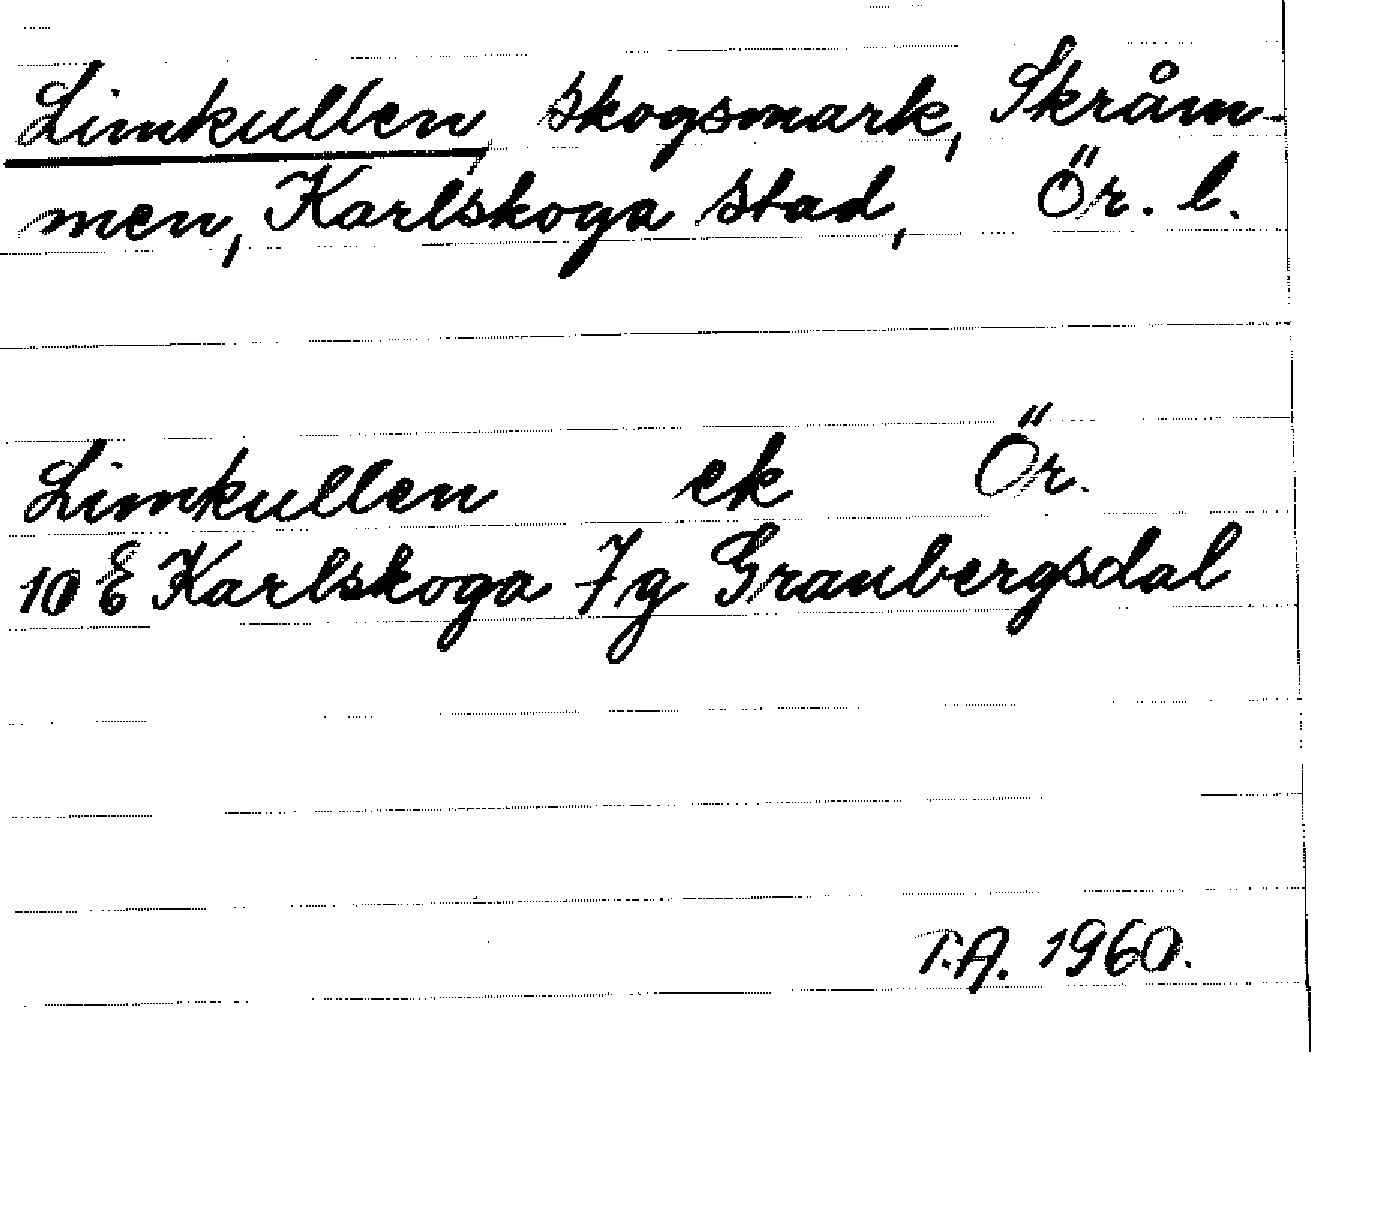 Limkullen, skogsmark, Skråm-
men, Karlskoga stad, Ör. l.
Limkullen ek Ör.
10 E Karlskoga 7g Granbergsdal
T.A. 1960.